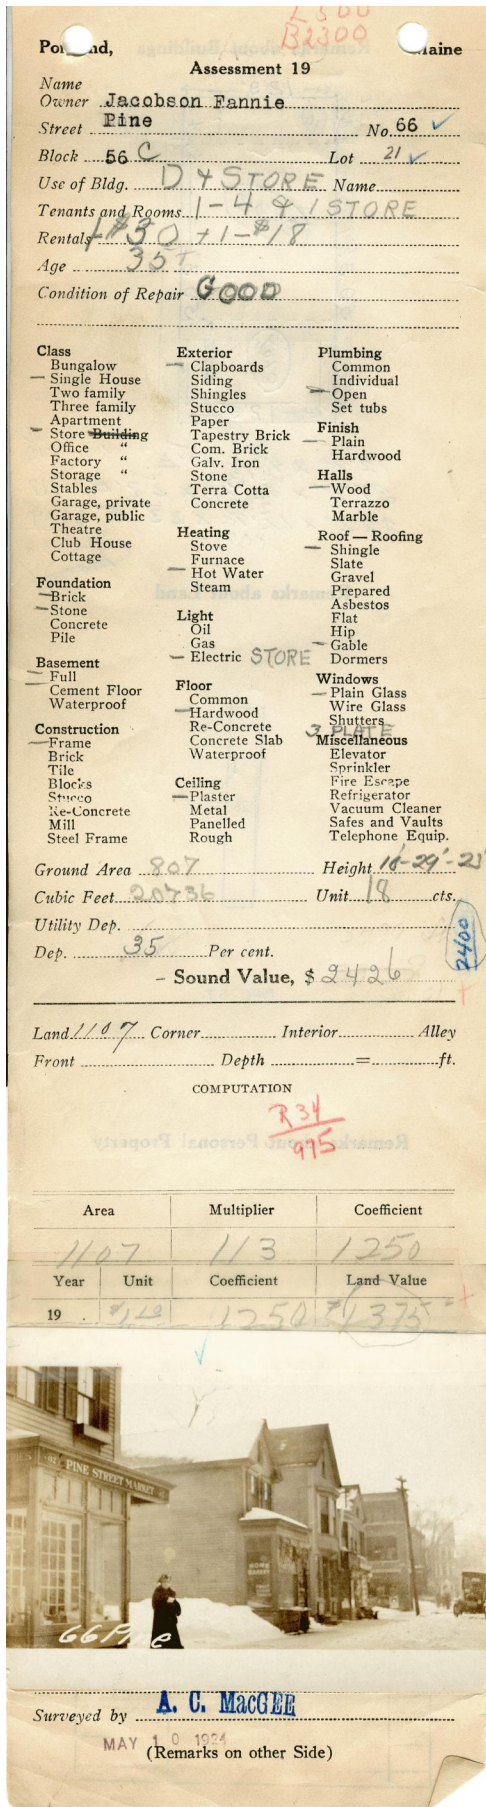 L 500
B2300
Portland, Maine
Assessment 19
Name
Owner Jacobson Fannie
Street Pine No. 66 ✓
Block 56 C Lot 21 ✓
Use of Bldg. D & STORE Name
Tenants and Rooms 1-4 & 1 STORE
Rentals 1-$30 + 1-$18
Age 35
Condition of Repair GOOD
Class
Bungalow
— Single House
Two family
Three family
Apartment
— Store Building
Office "
Factory "
Storage "
Stables
Garage, private
Garage, public
Theatre
Club House
Cottage
Foundation
— Brick
— Stone
Concrete
Pile
Basement
— Full
— Cement Floor
Waterproof
Construction
— Frame
Brick
Tile
Blocks
Stucco
Re-Concrete
Mill
Steel Frame
Exterior
— Clapboards
Siding
Shingles
Stucco
Paper
Tapestry Brick
Com. Brick
Galv. Iron
Stone
Terra Cotta
Concrete
Heating
Stove
Furnace
— Hot Water
Steam
Light
Oil
Gas
— Electric STORE
Floor
Common
— Hardwood
Re-Concrete
Concrete Slab
Waterproof
Ceiling
— Plaster
Metal
Panelled
Rough
Plumbing
Common
Individual
— Open
Set tubs
Finish
— Plain
Hardwood
Halls
— Wood
Terrazzo
Marble
Roof — Roofing
— Shingle
Slate
Gravel
Prepared
Asbestos
Flat
Hip
— Gable
Dormers
Windows
— Plain Glass
Wire Glass
Shutters
3 PLATE
Miscellaneous
Elevator
Sprinkler
Fire Escape
Refrigerator
Vacuum Cleaner
Safes and Vaults
Telephone Equip.
Ground Area 807 Height
Cubic Feet 20736 Unit 18 cts.
Utility Dep.
Dep. 35 Per cent.
2400
— Sound Value, $ 2426
Land 1107 Corner Interior Alley
Front Depth = ft.
COMPUTATION
R 34
975
Area Multiplier Coefficient
1107 113 1250
Year Unit Coefficient Land Value
19 $1.10 1250 $1375
92 PINE STREET MARKET
HOME
BAKERY
66 Pine
Surveyed by A. C. MacGEE
MAY 10 1924
(Remarks on other Side)